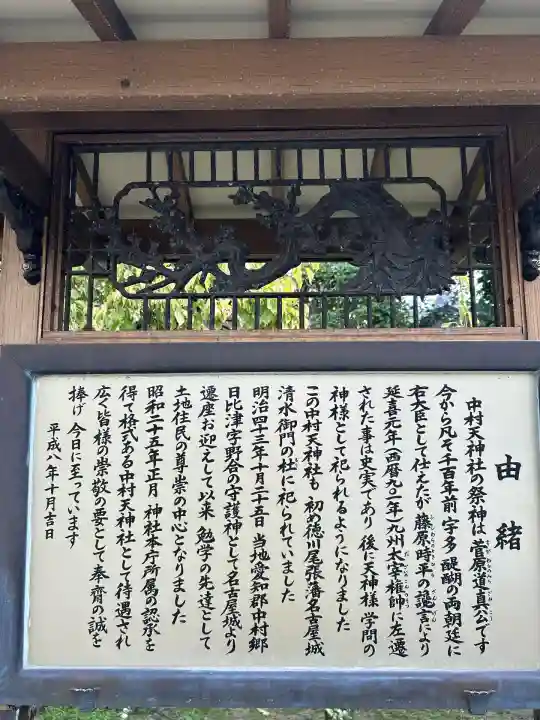 由緒
中村天神社の祭神は 菅原道真公です
今から凡そ千百年前 宇多 醍醐の両朝廷に
右大臣として仕えたが 藤原時平の讒言により
延喜元年(西暦九〇一年)九州太宰権帥に左遷
された事は史実であり 後に天神様 学問の
神様として祀られるようになりました
この中村天神社も 初め徳川尾張藩名古屋城
清水御門の杜に祀られていました
明治四十三年十月二十五日 当地愛知郡中村郷
日比津字野合の守護神として名古屋城より
遷座お迎えして以来 勉学の先達として
土地住民の尊崇の中心となりました
昭和二十五年正月 神社本庁所属の認承を
得て格式ある中村天神社として待遇され
広く皆様の崇敬の要として奉齊の誠を
捧げ 今日に至っています
平成八年十月吉日